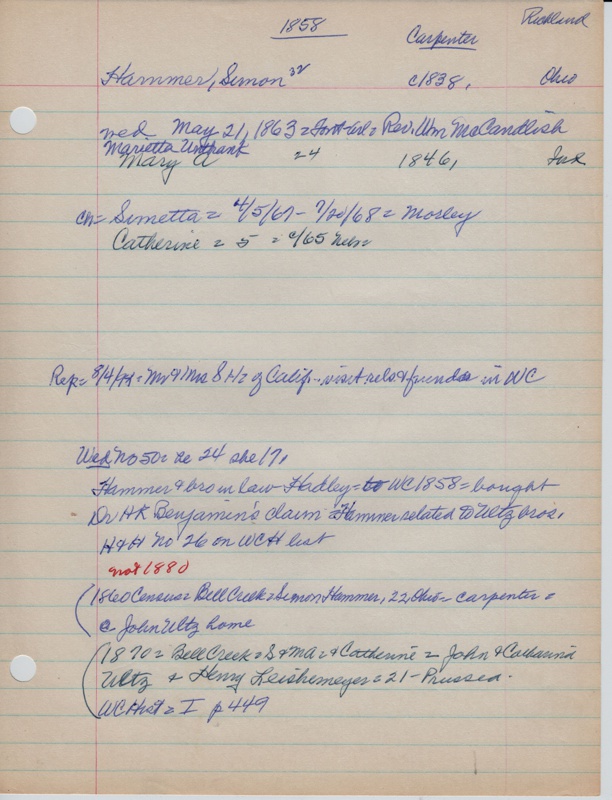 1858
Richland
Carpenter
Hammer, Simon 32 c1838, Ohio
wed May 21, 1863 = = Rev. Wm MacCandlish
Marietta Unthank
Mary A 24 1846, Ind
ch = Simetta = 4/5/67 - 7/20/68 = Mosley
Catherine = 5 = c/65 Nebr
Rep = 8/4/ = Mr & Mrs S H = of Calif - visit rels & friends in WC
Wed No 50 = he 24 she 17,
Hammer & bro in law Hadley = to WC 1858 = bought
Dr HR Benjamin's claim = Hammer related to Ultz bros.
H & H No 26 on WCH list
not 1880
(1860 Census = Bell Creek = Simon Hammer, 22, Ohio = carpenter =
c John Ultz home
(1870 = Bell Creek = S & Ma = & Catherine = John & Catharina
Ultz & Henry Leishemeyer = 21 - Prussia.
WC Hist = I p 449